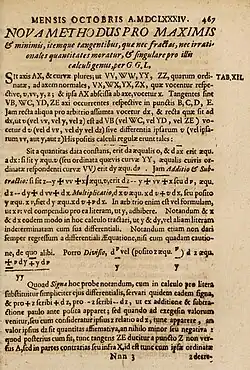 MENSIS OCTOBRIS A. MDCLXXXIV. 467
NOVA METHODUS PRO MAXIMIS
& minimis, itemque tangentibus, quæ nec fractas, nec irrationales
quantitates moratur, & singulare pro illis
calculi genus, per G. G. L.
Sit axis AX, & curvæ plures, ut VV, WW, YY, ZZ, quarum ordinatæ, TAB. XII.
ad axem normales, VX, WX, YX, ZX, quæ vocentur respective,
v, w, y, z; & ipsa AX abscissa ab axe, vocetur x. Tangentes sint
VB, WC, YD, ZE axi occurrentes respective in punctis B, C, D, E.
Jam recta aliqua pro arbitrio assumta vocetur dx, & recta quæ sit ad
dx, ut
His positis calculi regulæ erunt tales:
Sit a quantitas data constans, erit da æqualis 0, & d ax erit æqu.
a dx: si sit y æqu. v (seu ordinata quævis curvæ YY, æqualis cuivis ordinatæ
respondenti curvæ VV) erit dy æqu. dv. Jam Additio & Subtractio:
si sit z - y + w + x æqu. v, erit
dz - dy + dw + dx. Multiplicatio, d xv æqu. x dv + v dx, seu posito
y æqu. xv, fiet dy æqu. x dv + v dx. In arbitrio enim est vel formulam,
ut xv, vel compendio pro ea literam, ut y, adhibere. Notandum & x
& dx eodem modo in hoc calculo tractari, ut y & dy, vel aliam literam
indeterminatam cum sua differentiali. Notandum etiam non dari
semper regressum a differentiali Æquatione, nisi cum quadam cautione,
de quo alibi. Porro Divisio,
yy
Quoad Signa hoc probe notandum, cum in calculo pro litera
substituitur simpliciter ejus differentialis, servari quidem eadem signa,
& pro + z scribi + dz, pro - z scribi - dz, ut ex additione & subtractione
paulo ante posita apparet; sed quando ad exegesin valorum
venitur, seu cum consideratur ipsius z relatio ad x, tunc apparere, an
valor ipsius dz sit quantitas affirmativa, an nihilo minor seu negativa:
quod posterius cum fit, tunc tangens ZE ducitur a puncto Z non versus
A, sed in partes contrarias seu infra X, id est tunc cum ipsæ ordinatæ
Nnn 3